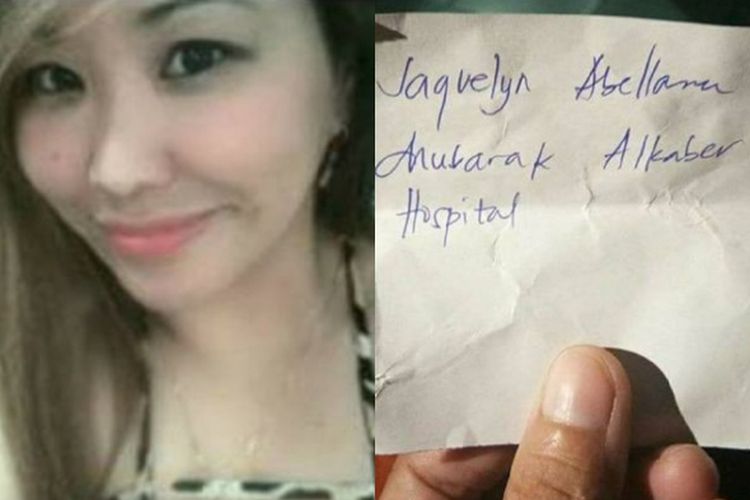 Jaquelyn Abellana
Mubarak Alkaber
Hospital